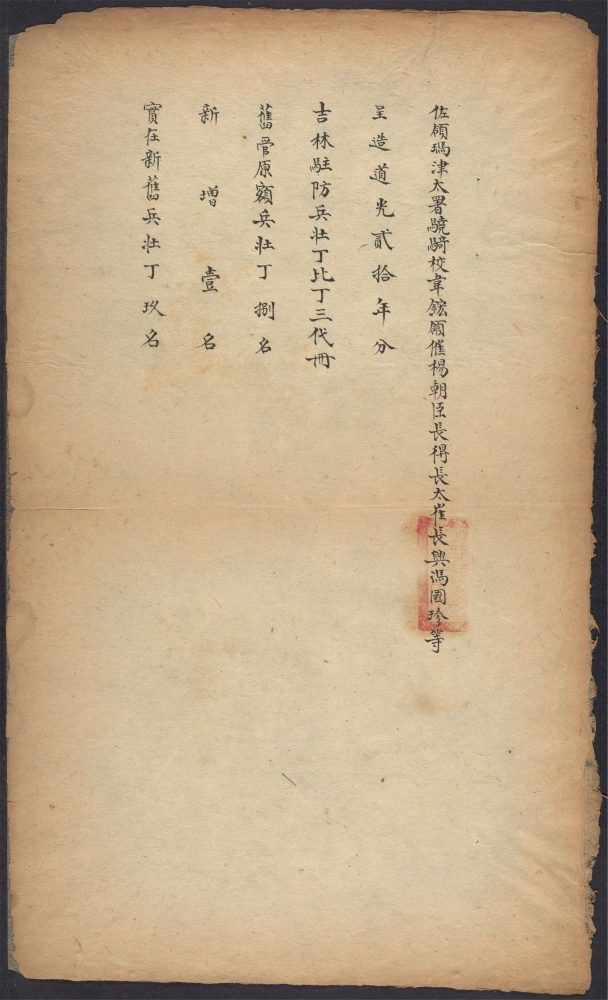 佐領瑪津太署驍騎校韋鋐領催楊朝臣長得長太崔長興馮國珍等
呈造道光貳拾年分
吉林駐防兵壯丁比丁三代冊
舊管原額兵壯丁捌名
新增壹名
實在新舊兵壯丁玖名